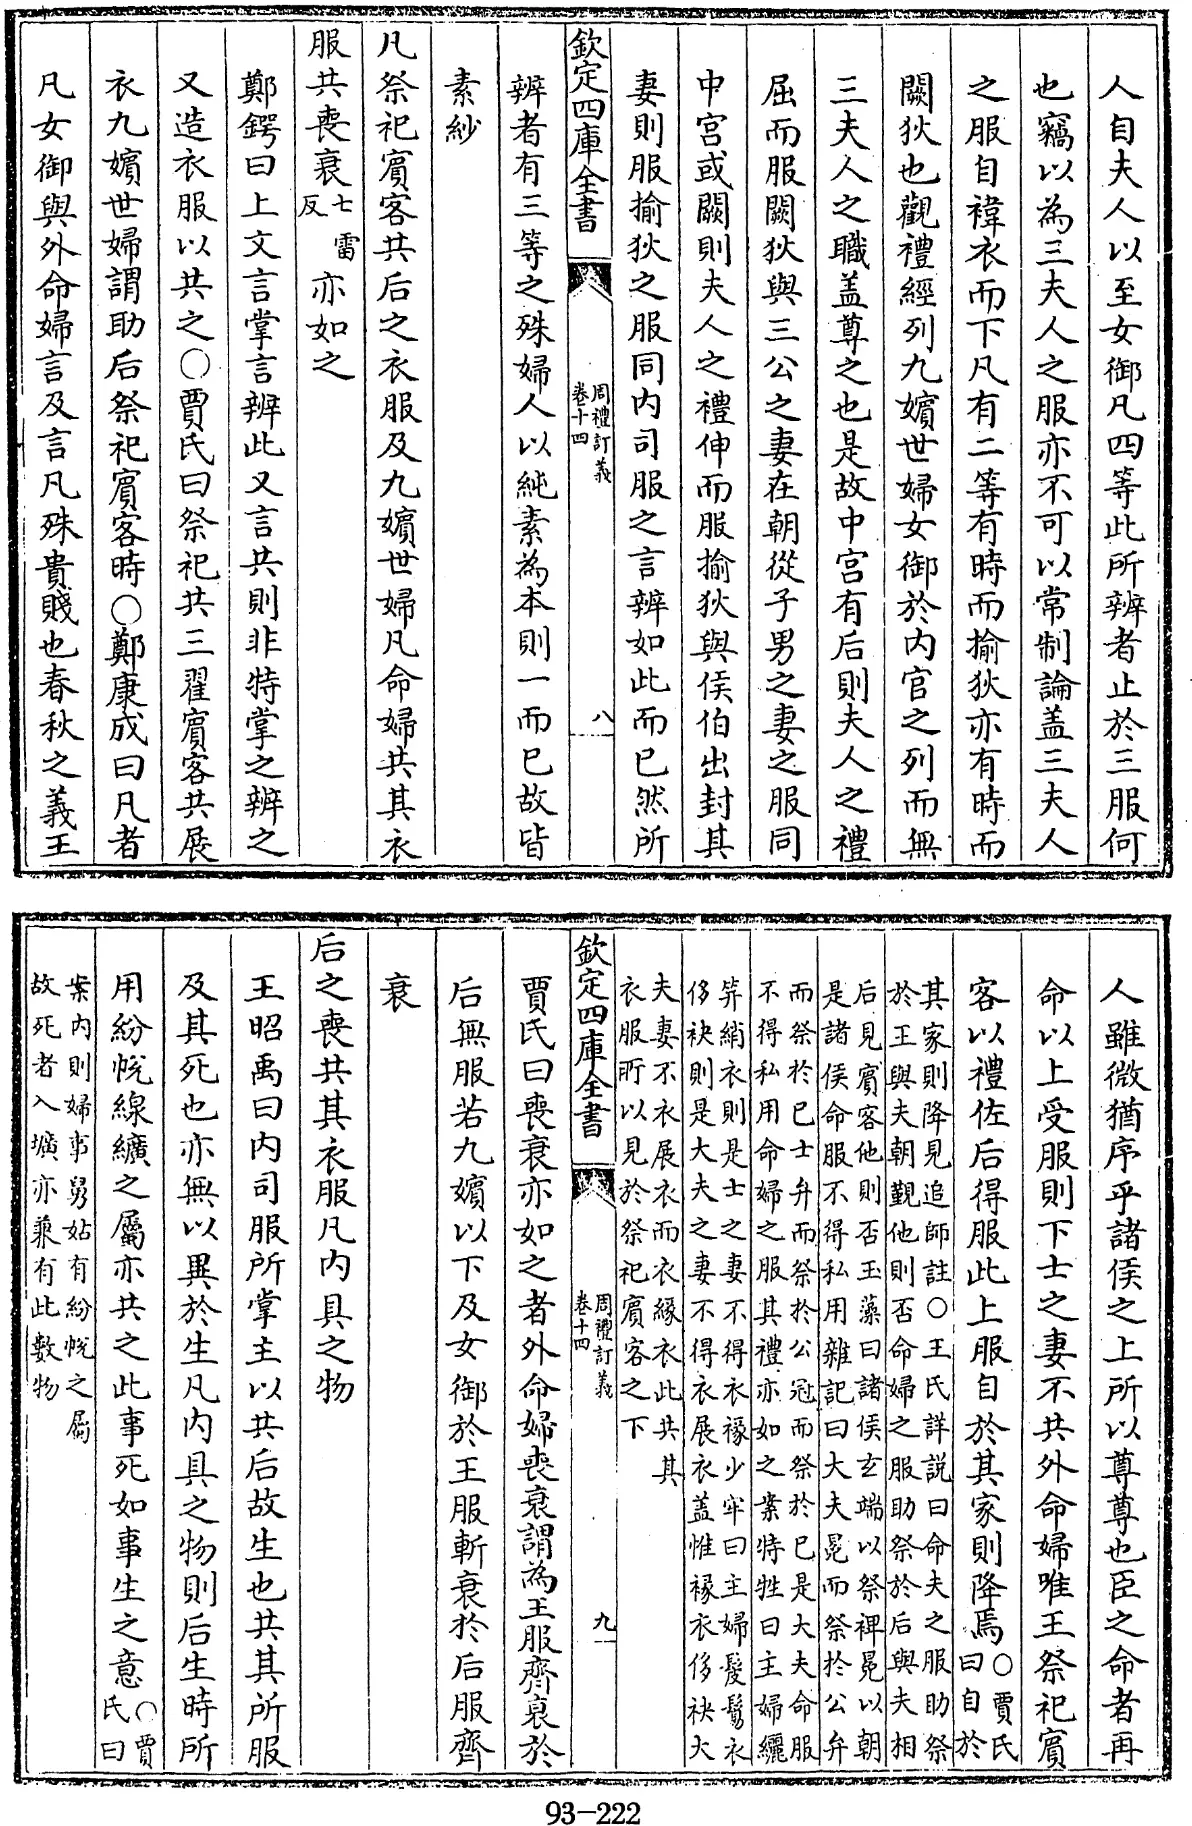 人自夫人以至女御凡四等此所辨者止於三服何
也竊以為三夫人之服亦不可以常制論盖三夫人
之服自褘衣而下凡有二等有時而揄狄亦有時而
闕狄也觀禮經列九嬪世婦女御於内官之列而無
三夫人之職盖尊之也是故中宫有后則夫人之禮
屈而服闕狄與三公之妻在朝從子男之妻之服同
中宫或闕則夫人之禮伸而服揄狄與侯伯出封其
妻則服揄狄之服同内司服之言辨如此而已然所
欽定四庫全書
周禮訂義
卷十四
八
辨者有三等之殊婦人以純素為本則一而已故皆
素紗
凡祭祀賓客共后之衣服及九嬪世婦凡命婦共其衣
服共喪衰七雷反亦如之
鄭鍔曰上文言掌言辨此又言共則非特掌之辨之
又造衣服以共之〇賈氏曰祭祀共三翟賓客共展
衣九嬪世婦謂助后祭祀賓客時〇鄭康成曰凡者
凡女御與外命婦言及言凡殊貴賤也春秋之義王
人雖微猶序乎諸侯之上所以尊尊也臣之命者再
命以上受服則下士之妻不共外命婦唯王祭祀賓
客以禮佐后得服此上服自於其家則降焉〇賈氏
曰自於
其家則降見追師註〇王氏詳説曰命夫之服助祭
於王與夫朝覲他則否命婦之服助祭於后與夫相
后見賓客他則否玉藻曰諸侯玄端以祭裨冕以朝
是諸侯命服不得私用雜記曰大夫冕而祭於公弁
而祭於已士弁而祭於公冠而祭於已是大夫命服
不得私用命婦之服其禮亦如之案特牲曰主婦纚
筓綃衣則是士之妻不得衣褖少牢曰主婦髲鬄衣
侈袂則是大夫之妻不得衣展衣盖惟褖衣侈袂大
夫妻不衣展衣而衣緣衣此共其
衣服所以見於祭祀賓客之下
欽定四庫全書
周禮訂義
卷十四
九
賈氏曰喪衰亦如之者外命婦喪衰謂為王服齊衰於
后無服若九嬪以下及女御於王服斬衰於后服齊
衰
后之喪共其衣服凡内具之物
王昭禹曰内司服所掌主以共后故生也共其所服
及其死也亦無以異於生凡内具之物則后生時所
用紛帨線纊之屬亦共之此事死如事生之意〇賈
氏曰
案内則婦事舅姑有紛帨之屬
故死者入壙亦兼有此數物
93-222